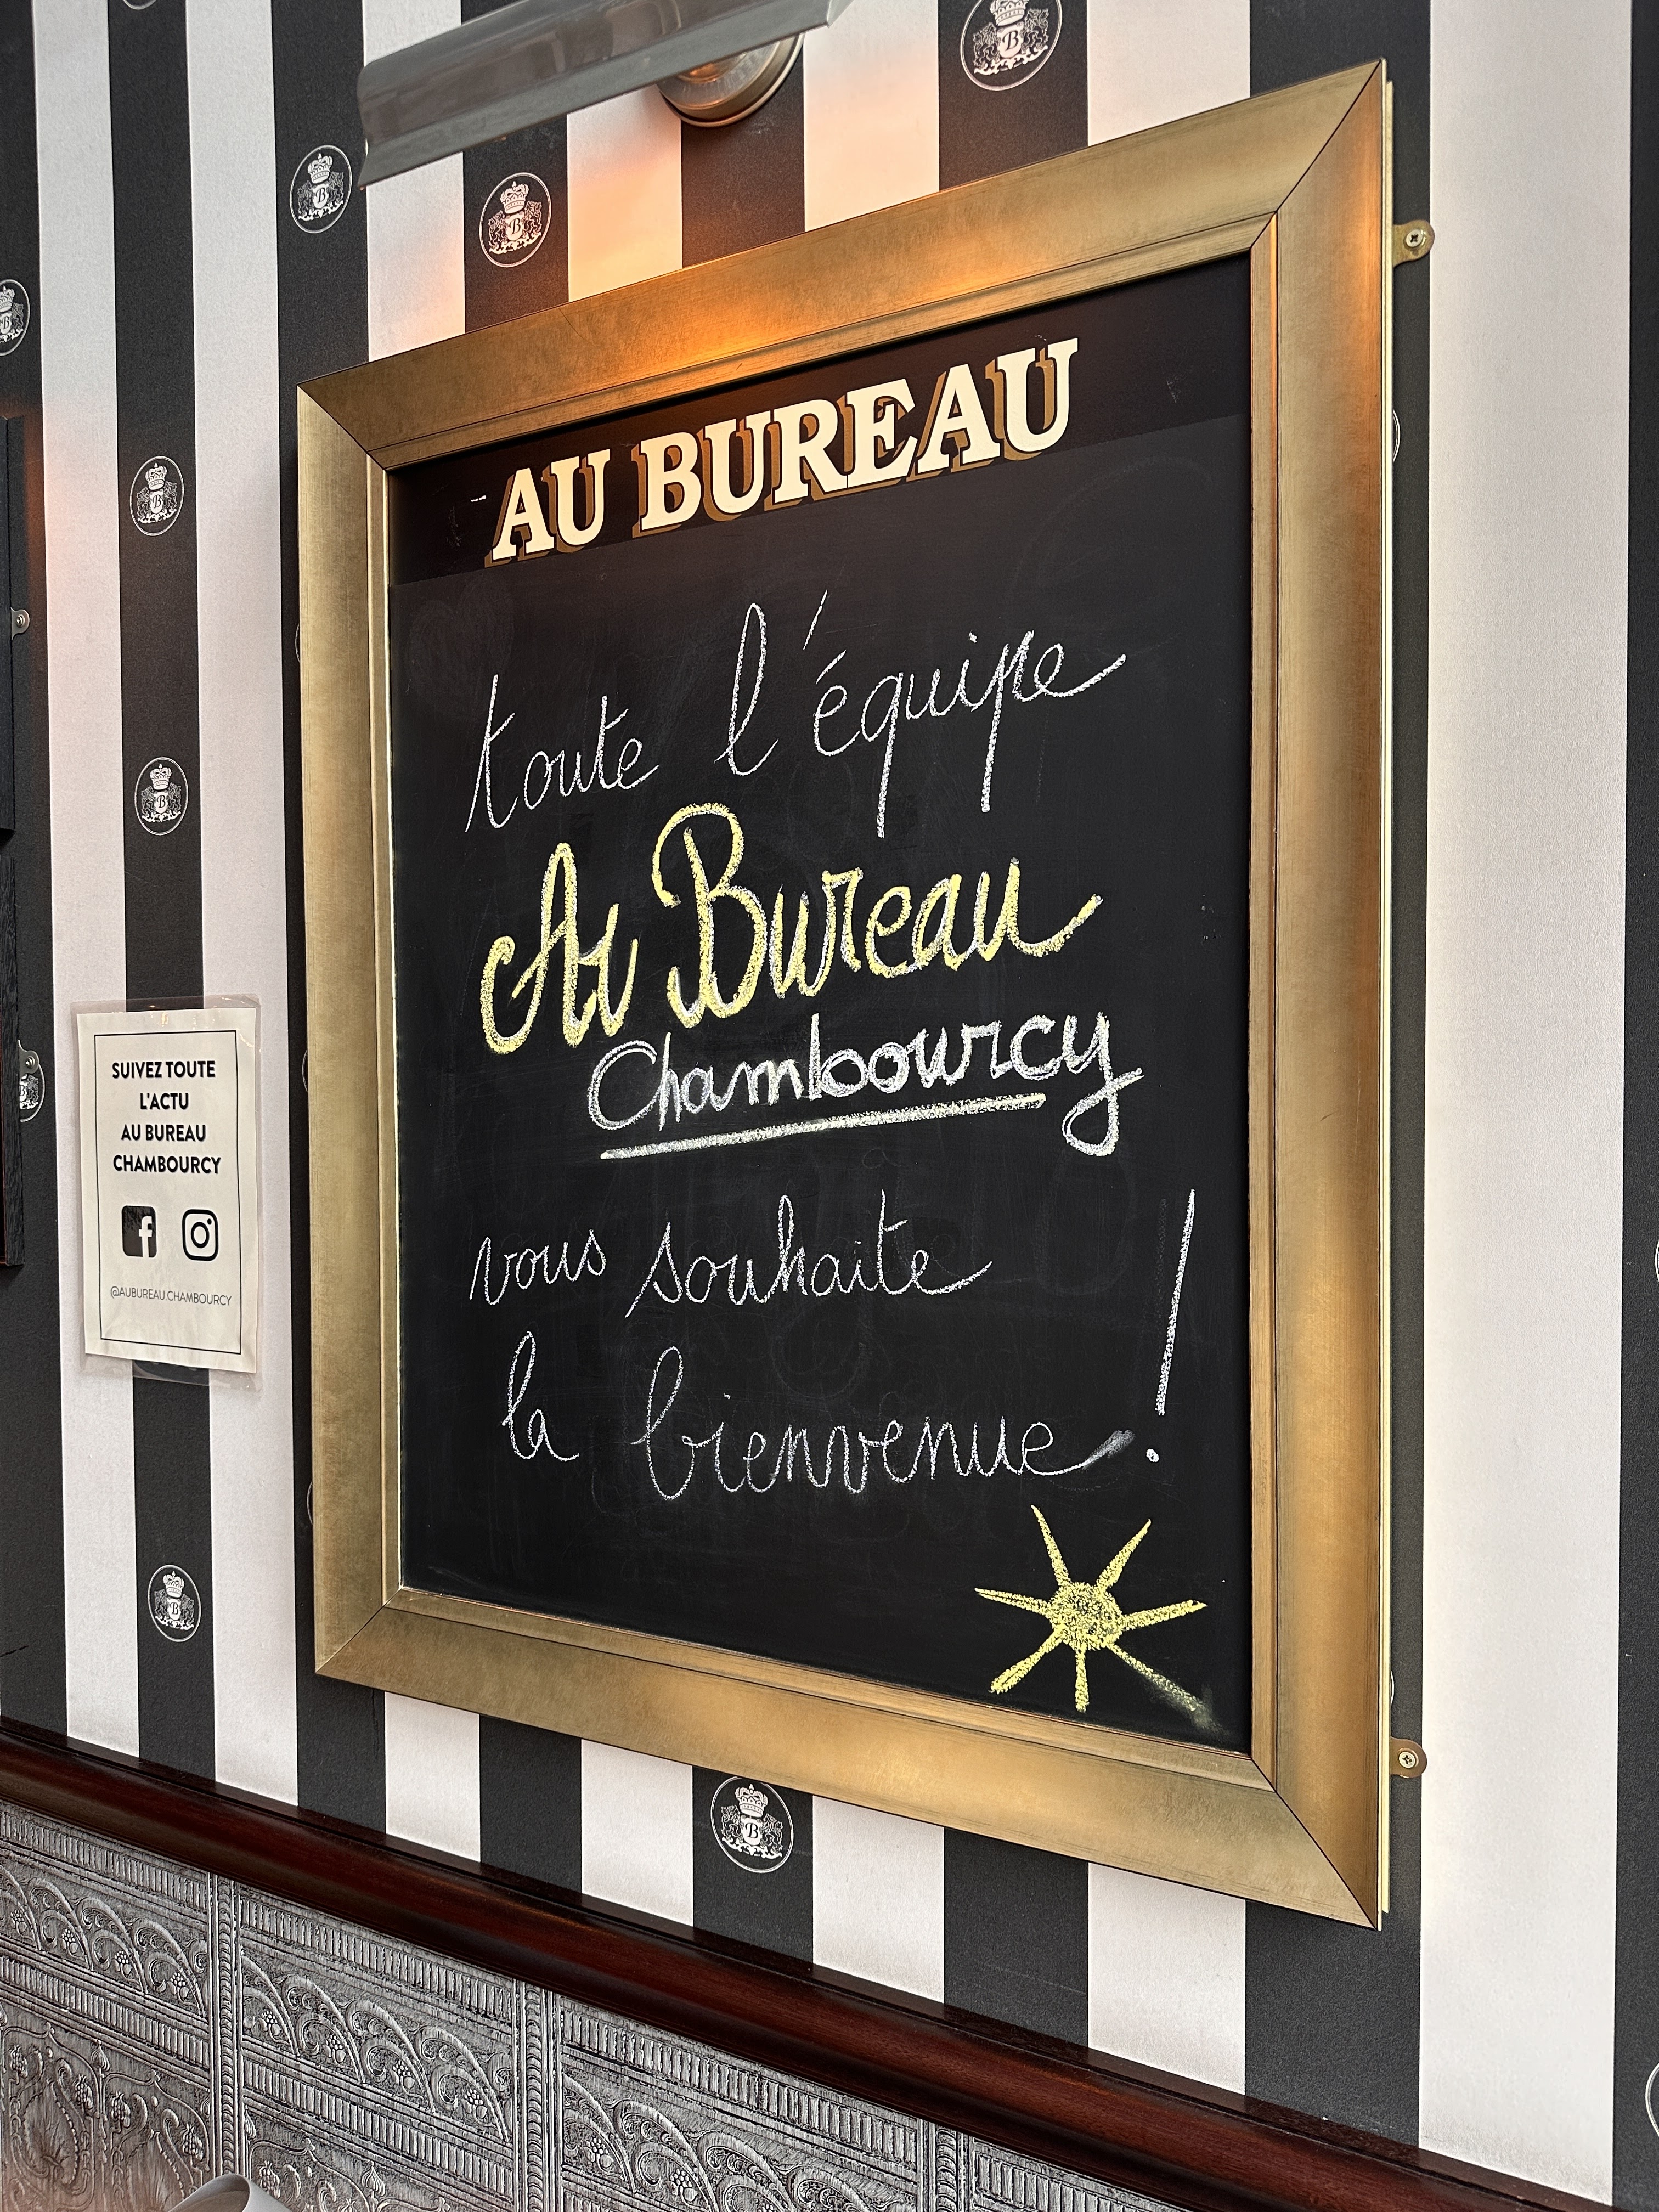 AU BUREAU
toute l'équipe
Au Bureau
Chambourcy
vous souhaite
la bienvenue !
SUIVEZ TOUTE
L'ACTU
AU BUREAU
CHAMBOURCY
@AUBUREAU.CHAMBOURCY
B
B
B
B
B
B
B